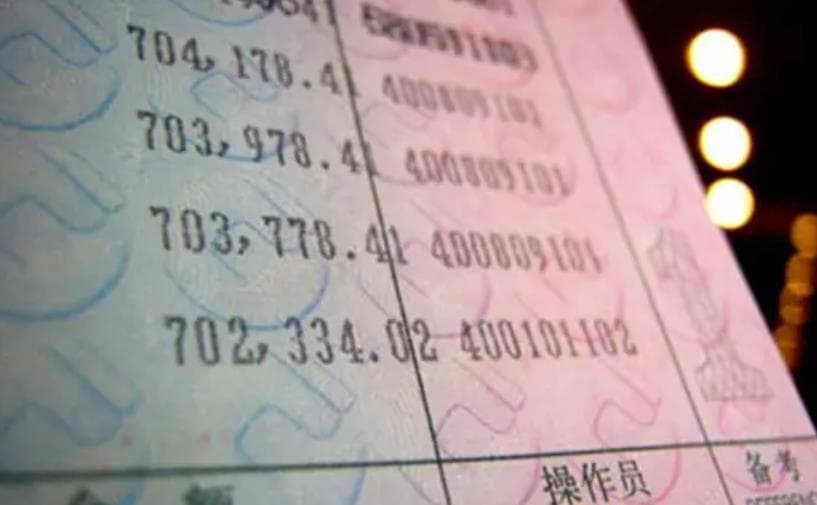 704,178.41 400809101
703,978.41 400809101
703,778.41 400809101
702,334.02 400101102
操作员 备考